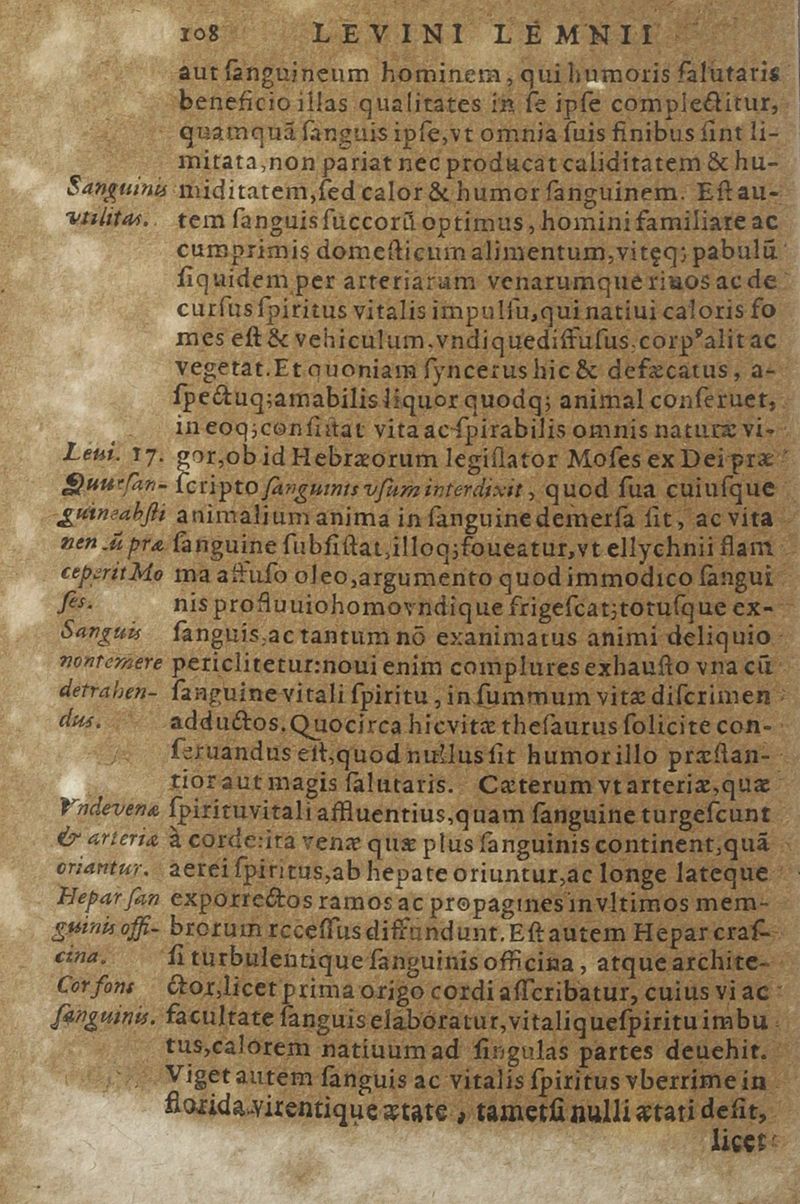 108 LEVINI LEMNII
aut ſanguineum hominem, qui humoris ſalutaris
beneficio illas qualitates in ſe ipſe complectitur,
quamquã ſanguis ipſe,vt omnia ſuis finibus ſint li-
mitata,non pariat nec producat caliditatem & hu-
Sanguinis miditatem,ſed calor & humor ſanguinem. Eſt au-
vtilitas. tem ſanguis ſuccorũ optimus, homini familiare ac
cumprimis domeſticum alimentum,vitęq; pabulũ
ſiquidem per arteriarum venarumque riuos ac de
curſus ſpiritus vitalis impulſu,qui natiui caloris fo
mes eſt & vehiculum,vndique diffuſus,corpꝰ alit ac
vegetat.Et quoniam ſyncerus hic & defæcatus, a-
ſpectuq;amabilis liquor quodq; animal conſeruet,
in eoq;conſiſtat vita ac ſpirabilis omnis naturæ vi-
Leui. 17. gor,ob id Hebræorum legiſlator Moſes ex Dei præ
Quur ſan- ſcripto ſanguinis vſum interdixit, quod ſua cuiuſque
guine abſti animalium anima in ſanguine demerſa ſit, ac vita
nen.ũ præ ſanguine ſubſiſtat,illoq;foueatur,vt ellychnii flam
ceperit Mo ma affuſo oleo,argumento quod immodico ſangui
ſes. nis profluuio homo vndique frigeſcat;totuſque ex-
Sanguis ſanguis,ac tantum nõ exanimatus animi deliquio
non temere periclitetur:noui enim complures exhauſto vna cũ
detrahen- ſanguine vitali ſpiritu, in ſummum vitæ diſcrimen
dus. adductos.Quocirca hic vitæ theſaurus ſolicite con-
ſeruandus eſt,quod nullus ſit humor illo præſtan-
tior aut magis ſalutaris. Cæterum vt arteriæ,quæ
Vnde venæ ſpiritu vitali affluentius,quam ſanguine turgeſcunt
& arteriæ à corde:ita venæ quæ plus ſanguinis continent,quã
oriantur. aerei ſpiritus,ab hepate oriuntur,ac longe lateque
Hepar ſan exporrectos ramos ac propagines in vltimos mem-
guinis offi- brorum receſſus diffundunt.Eſt autem Hepar craſ-
cina. ſi turbulentique ſanguinis officina, atque archite-
Cor fons ctor,licet prima origo cordi aſſcribatur, cuius vi ac
ſanguinis. facultate ſanguis elaboratur,vitalique ſpiritu imbu
tus,calorem natiuum ad ſingulas partes deuehit.
Viget autem ſanguis ac vitalis ſpiritus vberrime in
florida virentique ætate, tametſi nulli ætati deſit,
licet